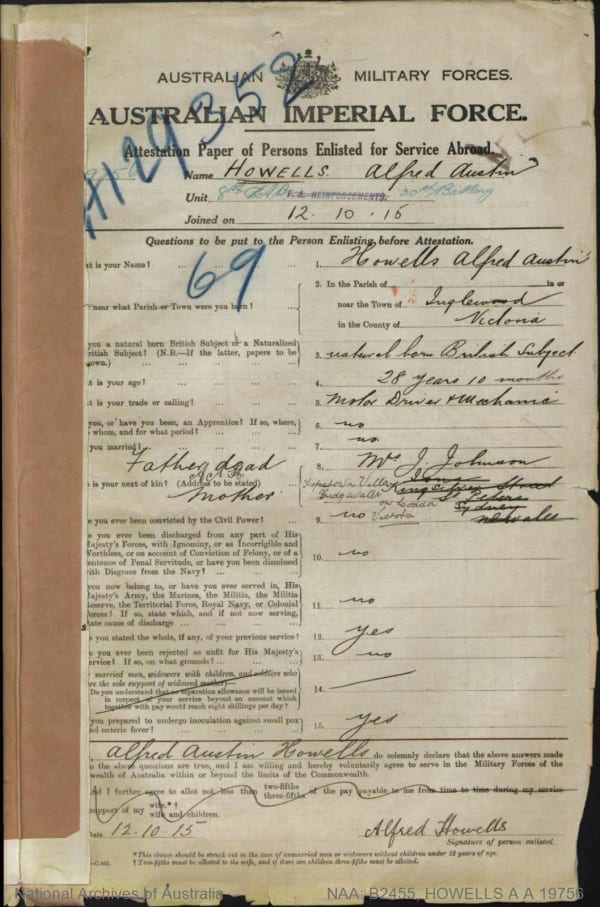 AUSTRALIAN MILITARY FORCES.
AUSTRALIAN IMPERIAL FORCE.
A1129352
Attestation Paper of Persons Enlisted for Service Abroad.
Name HOWELLS. Alfred Austin
Unit F. A. REINFORCEMENTS.
Joined on 12. 10. 15
Questions to be put to the Person Enlisting, before Attestation.
69
at is your Name? ... 1. Howells Alfred Austin
near what Parish or Town were you born? ... 2. In the Parish of in or
near the Town of Inglewood
in the County of Victoria
you a natural born British Subject or a Naturalized
ritish Subject? (N.B.—If the latter, papers to be
own.) 3. natural born British Subject
at is your age? ... 4. 28 years 10 months
at is your trade or calling? ... 5. Motor Driver & Mechanic
you, or have you been, an Apprentice? If so, where,
whom, and for what period? ... 6. no
you married? ... 7. no
Father dead
is your next of kin? (Address to be stated) 8. Mrs J. Johnson
Mother
Bridgewater on Loddon
St Peters
Sydney
Victoria
e you ever been convicted by the Civil Power? ... 9. no
e you ever been discharged from any part of His
Majesty's Forces, with Ignominy, or as Incorrigible and
Worthless, or on account of Conviction of Felony, or of a
entence of Penal Servitude, or have you been dismissed
ith Disgrace from the Navy? ... 10. no
you now belong to, or have you ever served in, His
Majesty's Army, the Marines, the Militia, the Militia
eserve, the Territorial Force, Royal Navy, or Colonial
orces? If so, state which, and if not now serving,
tate cause of discharge ... 11. no
e you stated the whole, if any, of your previous service? 12. yes
e you ever been rejected as unfit for His Majesty's
ervice? If so, on what grounds? ... 13. no
married men, widowers with children, and soldiers who
re the sole support of widowed mother)—
Do you understand that no separation allowance will be issued
in respect of your service beyond an amount which
together with pay would reach eight shillings per day? 14.
you prepared to undergo inoculation against small pox
nd enteric fever? ... 15. yes
Alfred Austin Howells do solemnly declare that the above answers made
o the above questions are true, and I am willing and hereby voluntarily agree to serve in the Military Forces of the
wealth of Australia within or beyond the limits of the Commonwealth.
nd I further agree to allot not less than two-fifths three-fifths of the pay payable to me from time to time during my service
upport of my wife.*† wife and children.
Date 12-10-15 Alfred Howells
Signature of person enlisted.
*This clause should be struck out in the case of unmarried men or widowers without children under 18 years of age.
† Two-fifths must be allotted to the wife, and if there are children three-fifths must be allotted.
National Archives of Australia NAA: B2455, HOWELLS A A 19756